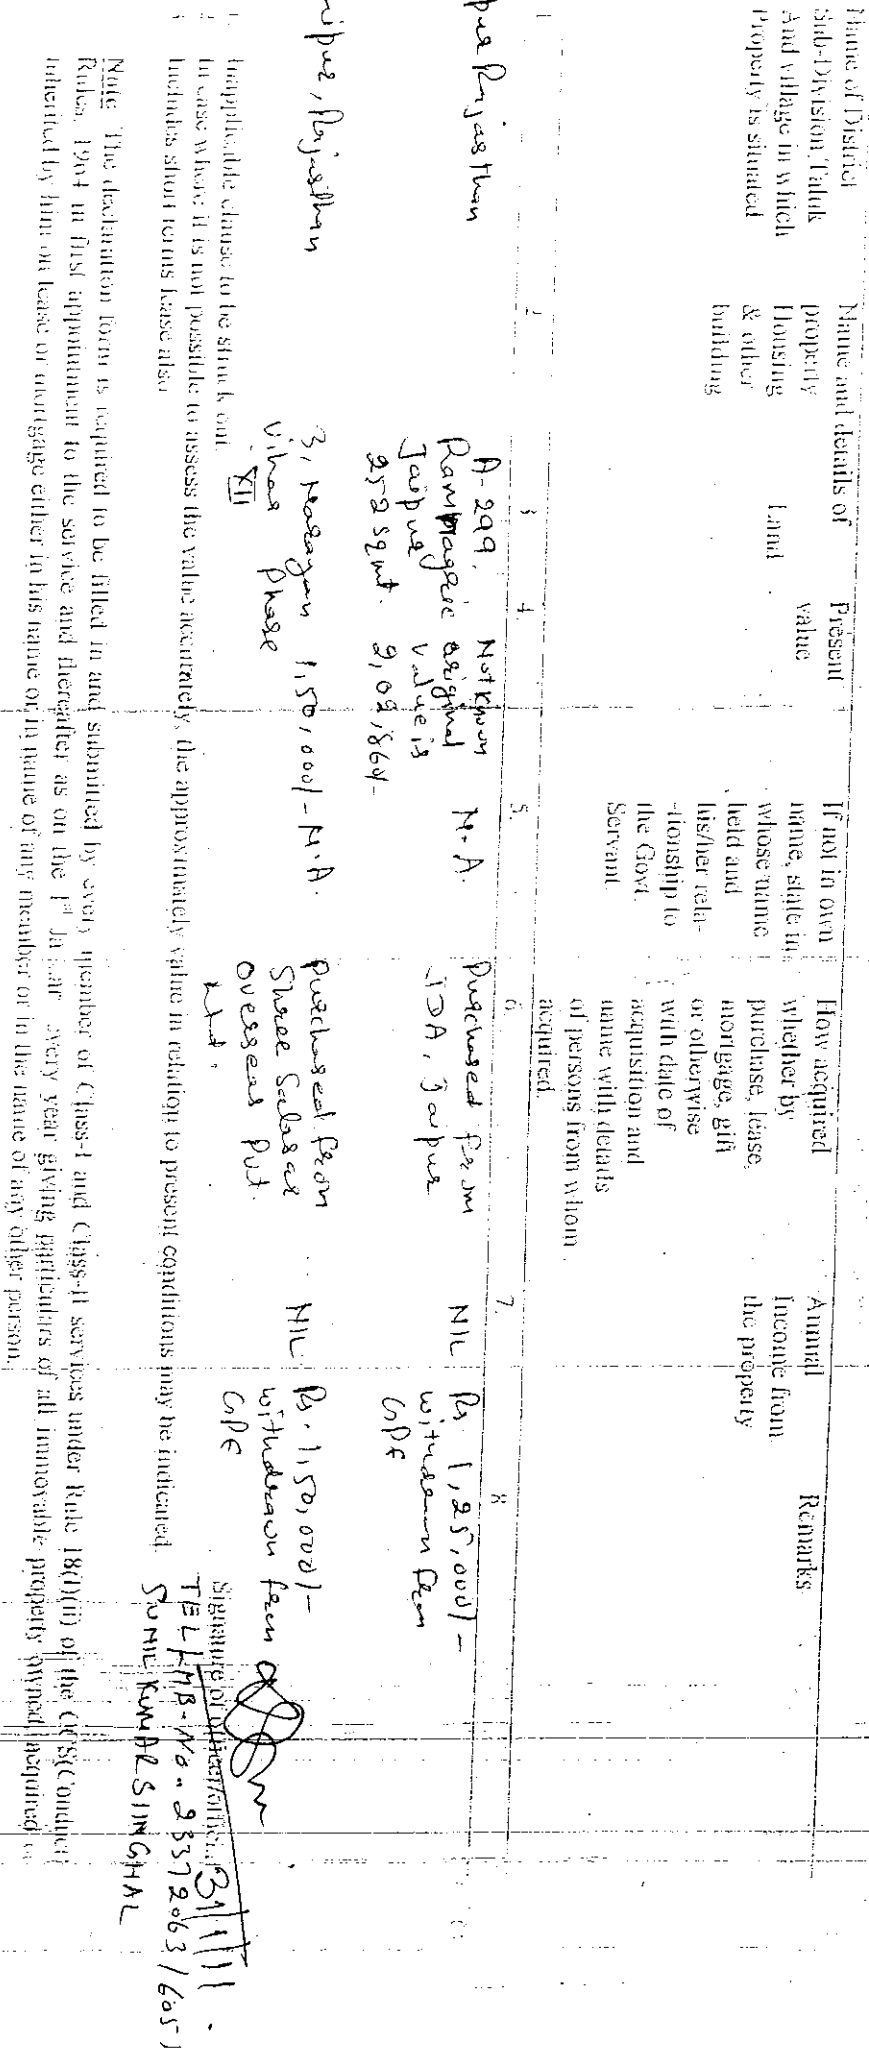 Name of District
Sub-Division, Taluk
And village in which
Property is situated
Name and details of
property
Housing
& other
building
Land
Present
value
If not in own
name, state in
whose name
held and
his/her rela-
-tionship to
the Govt.
Servant
How acquired
whether by
purchase, lease,
mortgage, gift
or otherwise
with date of
acquisition and
name with details
of persons from whom
acquired.
Annual
Income from
the property
Remarks
1 2 3 4. 5. 6. 7. 8
Rajasthan
A-299,
Jaipur
252 sqmt.
Not known
original
value is
2,02,864/-
N.A.
Purchased from
JDA, Jaipur
NIL
Rs. 1,25,000/-
withdrawn from
GPF
Rajasthan
3, Narayan
Vihar Phase
XII
1,50,000/-
N.A.
Purchased from
Shree Salasar
Overseas Pvt.
Ltd.
NIL
Rs. 1,50,000/-
withdrawn from
GPF
Inapplicable clause to be struck out.
In case where it is not possible to assess the value accurately, the approximately value in relation to present conditions may be indicated.
Includes short terms lease also
Signature of officer/official
31/1/11
TEL/MB-No. 23372063/605
SUNIL KUMAR SINGHAL
Note The declaration form is required to be filled in and submitted by every member of Class-I and Class-II services under Rule 18(1)(ii) of the CCS(Conduct)
Rules, 1964 in first appointment to the service and thereafter as on the 1st January every year giving particulars of all immovable property owned/acquired or
inherited by him on lease or mortgage either in his name or in name of any member or in the name of any other person.